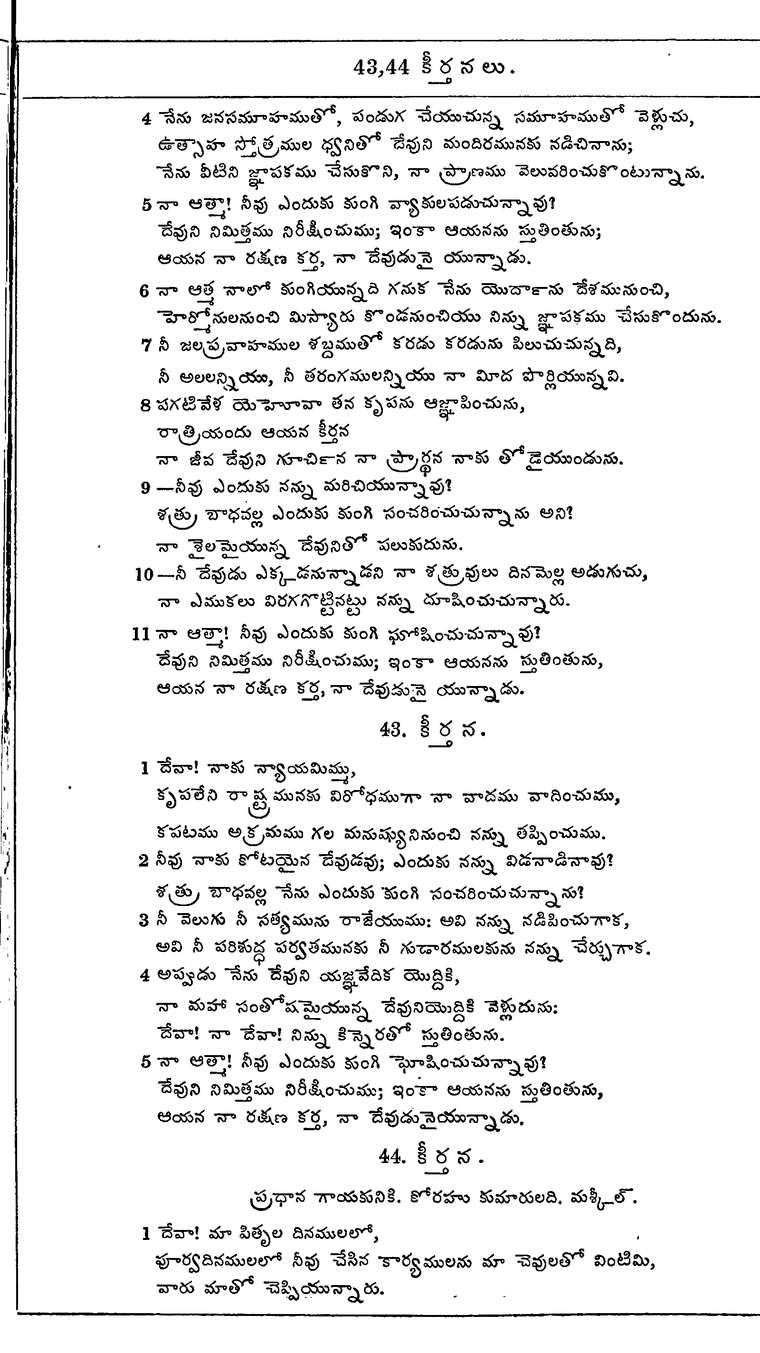 43,44 కీర్తనలు.
4 నేను జనసమూహముతో, పండుగ చేయుచున్న సమూహముతో వెళ్లుచు,
ఉత్సాహ స్తోత్రముల ధ్వనితో దేవుని మందిరమునకు నడిచినాను;
నేను వీటిని జ్ఞాపకము చేసుకొని, నా ప్రాణము వెలువరించుకొంటున్నాను.
5 నా ఆత్మా! నీవు ఎందుకు కుంగి వ్యాకులపడుచున్నావు?
దేవుని నిమిత్తము నిరీక్షించుము; ఇంకా ఆయనను స్తుతింతును;
ఆయన నా రక్షణ కర్త, నా దేవుడునై యున్నాడు.
6 నా ఆత్మ నాలో కుంగియున్నది గనుక నేను యొర్దాను దేశమునుంచి,
హెర్మోనులనుంచి మిస్యారు కొండనుంచియు నిన్ను జ్ఞాపకము చేసుకొందును.
7 నీ జలప్రవాహముల శబ్దముతో కరడు కరడును పిలుచుచున్నది,
నీ అలలన్నియు, నీ తరంగములన్నియు నా మీద పొర్లియున్నవి.
8 పగటివేళ యెహోవా తన కృపను ఆజ్ఞాపించును,
రాత్రియందు ఆయన కీర్తన
నా జీవ దేవుని గూర్చిన నా ప్రార్థన నాకు తోడైయుండును.
9 —నీవు ఎందుకు నన్ను మరిచియున్నావు?
శత్రు బాధవల్ల ఎందుకు కుంగి సంచరించుచున్నాను అని?
నా శైలమైయున్న దేవునితో పలుకుదును.
10 —నీ దేవుడు ఎక్కడనున్నాడని నా శత్రువులు దినమెల్ల అడుగుచు,
నా ఎముకలు విరగగొట్టినట్టు నన్ను దూషించుచున్నారు.
11 నా ఆత్మా! నీవు ఎందుకు కుంగి ఘోషించుచున్నావు?
దేవుని నిమిత్తము నిరీక్షించుము; ఇంకా ఆయనను స్తుతింతును,
ఆయన నా రక్షణ కర్త, నా దేవుడునై యున్నాడు.
43. కీర్తన.
1 దేవా! నాకు న్యాయమిమ్ము,
కృపలేని రాష్ట్రమునకు విరోధముగా నా వాదము వాదించుము,
కపటము అక్రమము గల మనుష్యునినుంచి నన్ను తప్పించుము.
2 నీవు నాకు కోటయైన దేవుడవు; ఎందుకు నన్ను విడనాడినావు?
శత్రు బాధవల్ల నేను ఎందుకు కుంగి సంచరించుచున్నాను?
3 నీ వెలుగు నీ సత్యమును రాజేయుము: అవి నన్ను నడిపించుగాక,
అవి నీ పరిశుద్ధ పర్వతమునకు నీ గుడారములకును నన్ను చేర్చుగాక.
4 అప్పుడు నేను దేవుని యజ్ఞవేదిక యొద్దికి,
నా మహా సంతోషమైయున్న దేవునియొద్దికి వెళ్లుదును:
దేవా! నా దేవా! నిన్ను కిన్నెరతో స్తుతింతును.
5 నా ఆత్మా! నీవు ఎందుకు కుంగి ఘోషించుచున్నావు?
దేవుని నిమిత్తము నిరీక్షించుము; ఇంకా ఆయనను స్తుతింతును,
ఆయన నా రక్షణ కర్త, నా దేవుడునైయున్నాడు.
44. కీర్తన.
ప్రధాన గాయకునికి. కోరహు కుమారులది. మశ్కీల్.
1 దేవా! మా పితృల దినములలో,
పూర్వదినములలో నీవు చేసిన కార్యములను మా చెవులతో వింటిమి,
వారు మాతో చెప్పియున్నారు.